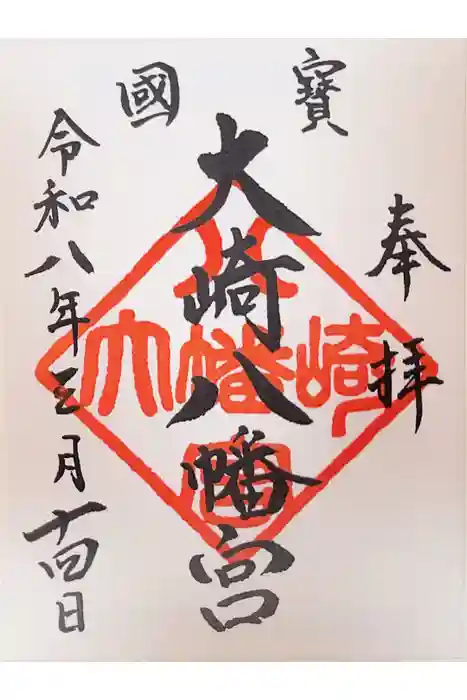 國寶
奉拝
大崎八幡宮
令和八年三月十四日
大崎八幡宮